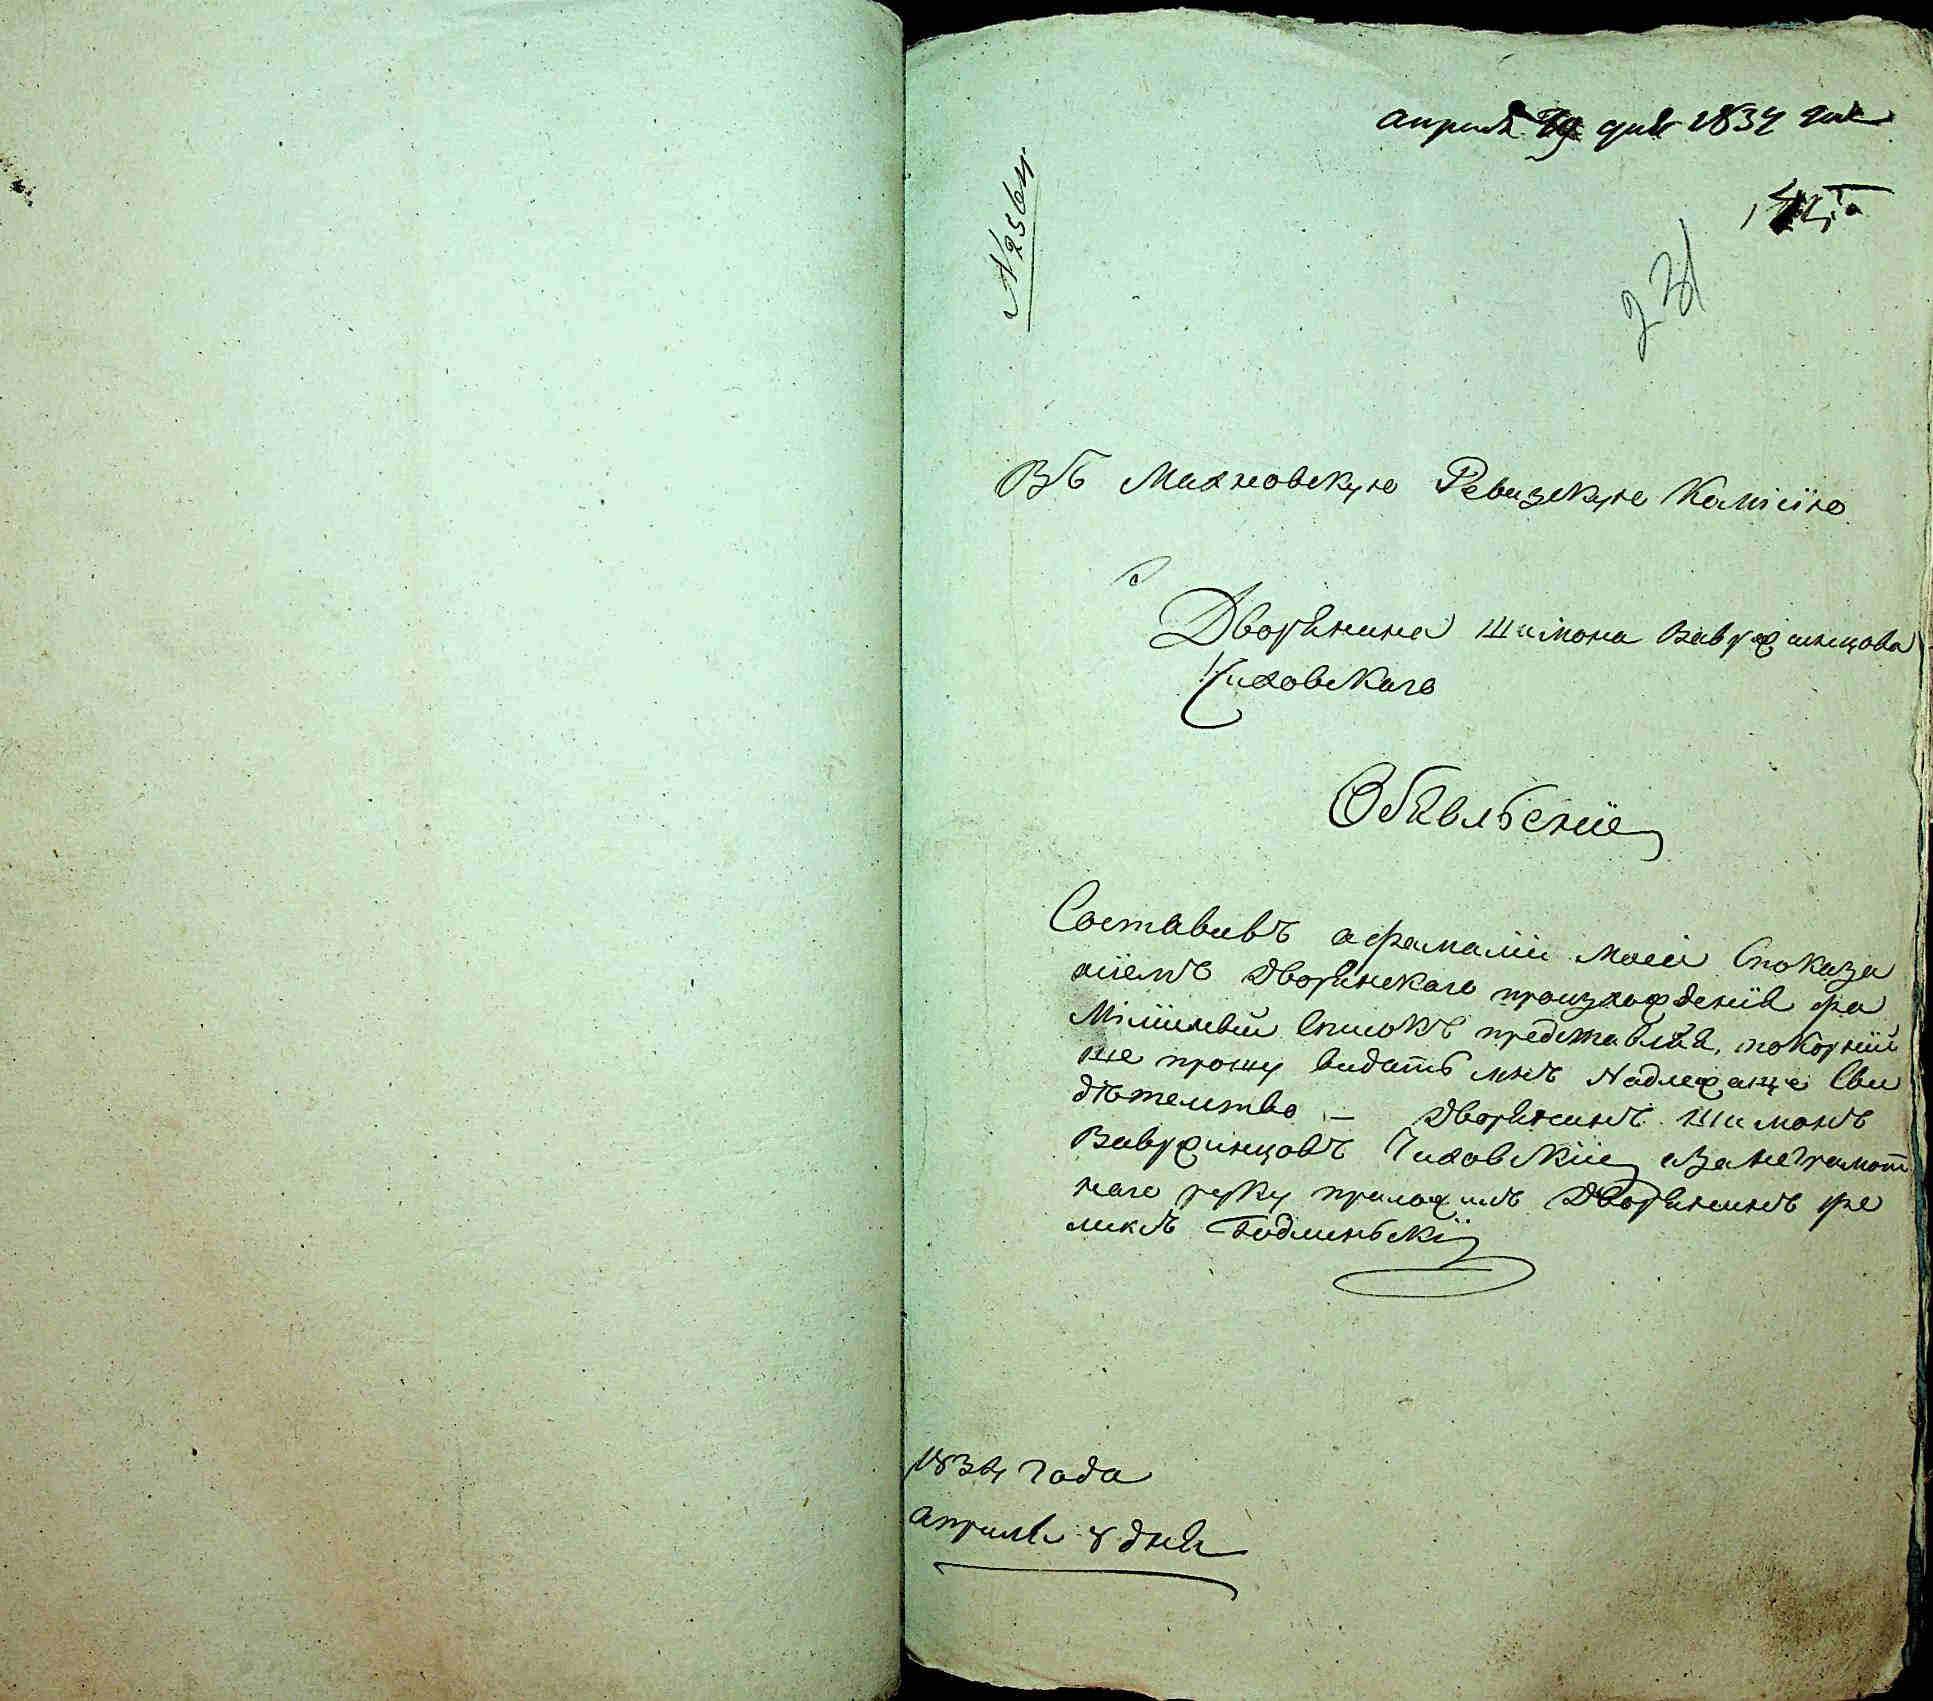 апреля 19 дня 1834 года
№2564
231
Въ Махновскую Ревизскую Комісію
Дворянина Шимона Вавржинцова
Чиховскаго
Объявленіе
Составивъ о фамиліи моей споказа
ніемъ Дворянскаго произхожденія фа
милійный списокъ представляя, покорній
ше прошу видать мнѣ надлежаще сви
дѣтелство — Дворянинъ Шимонъ
Вавржинцовъ Чиховскій а за неграмот
наго руку приложилъ Дворянинъ фе
ликсъ
1834 года
апреля 8 дня